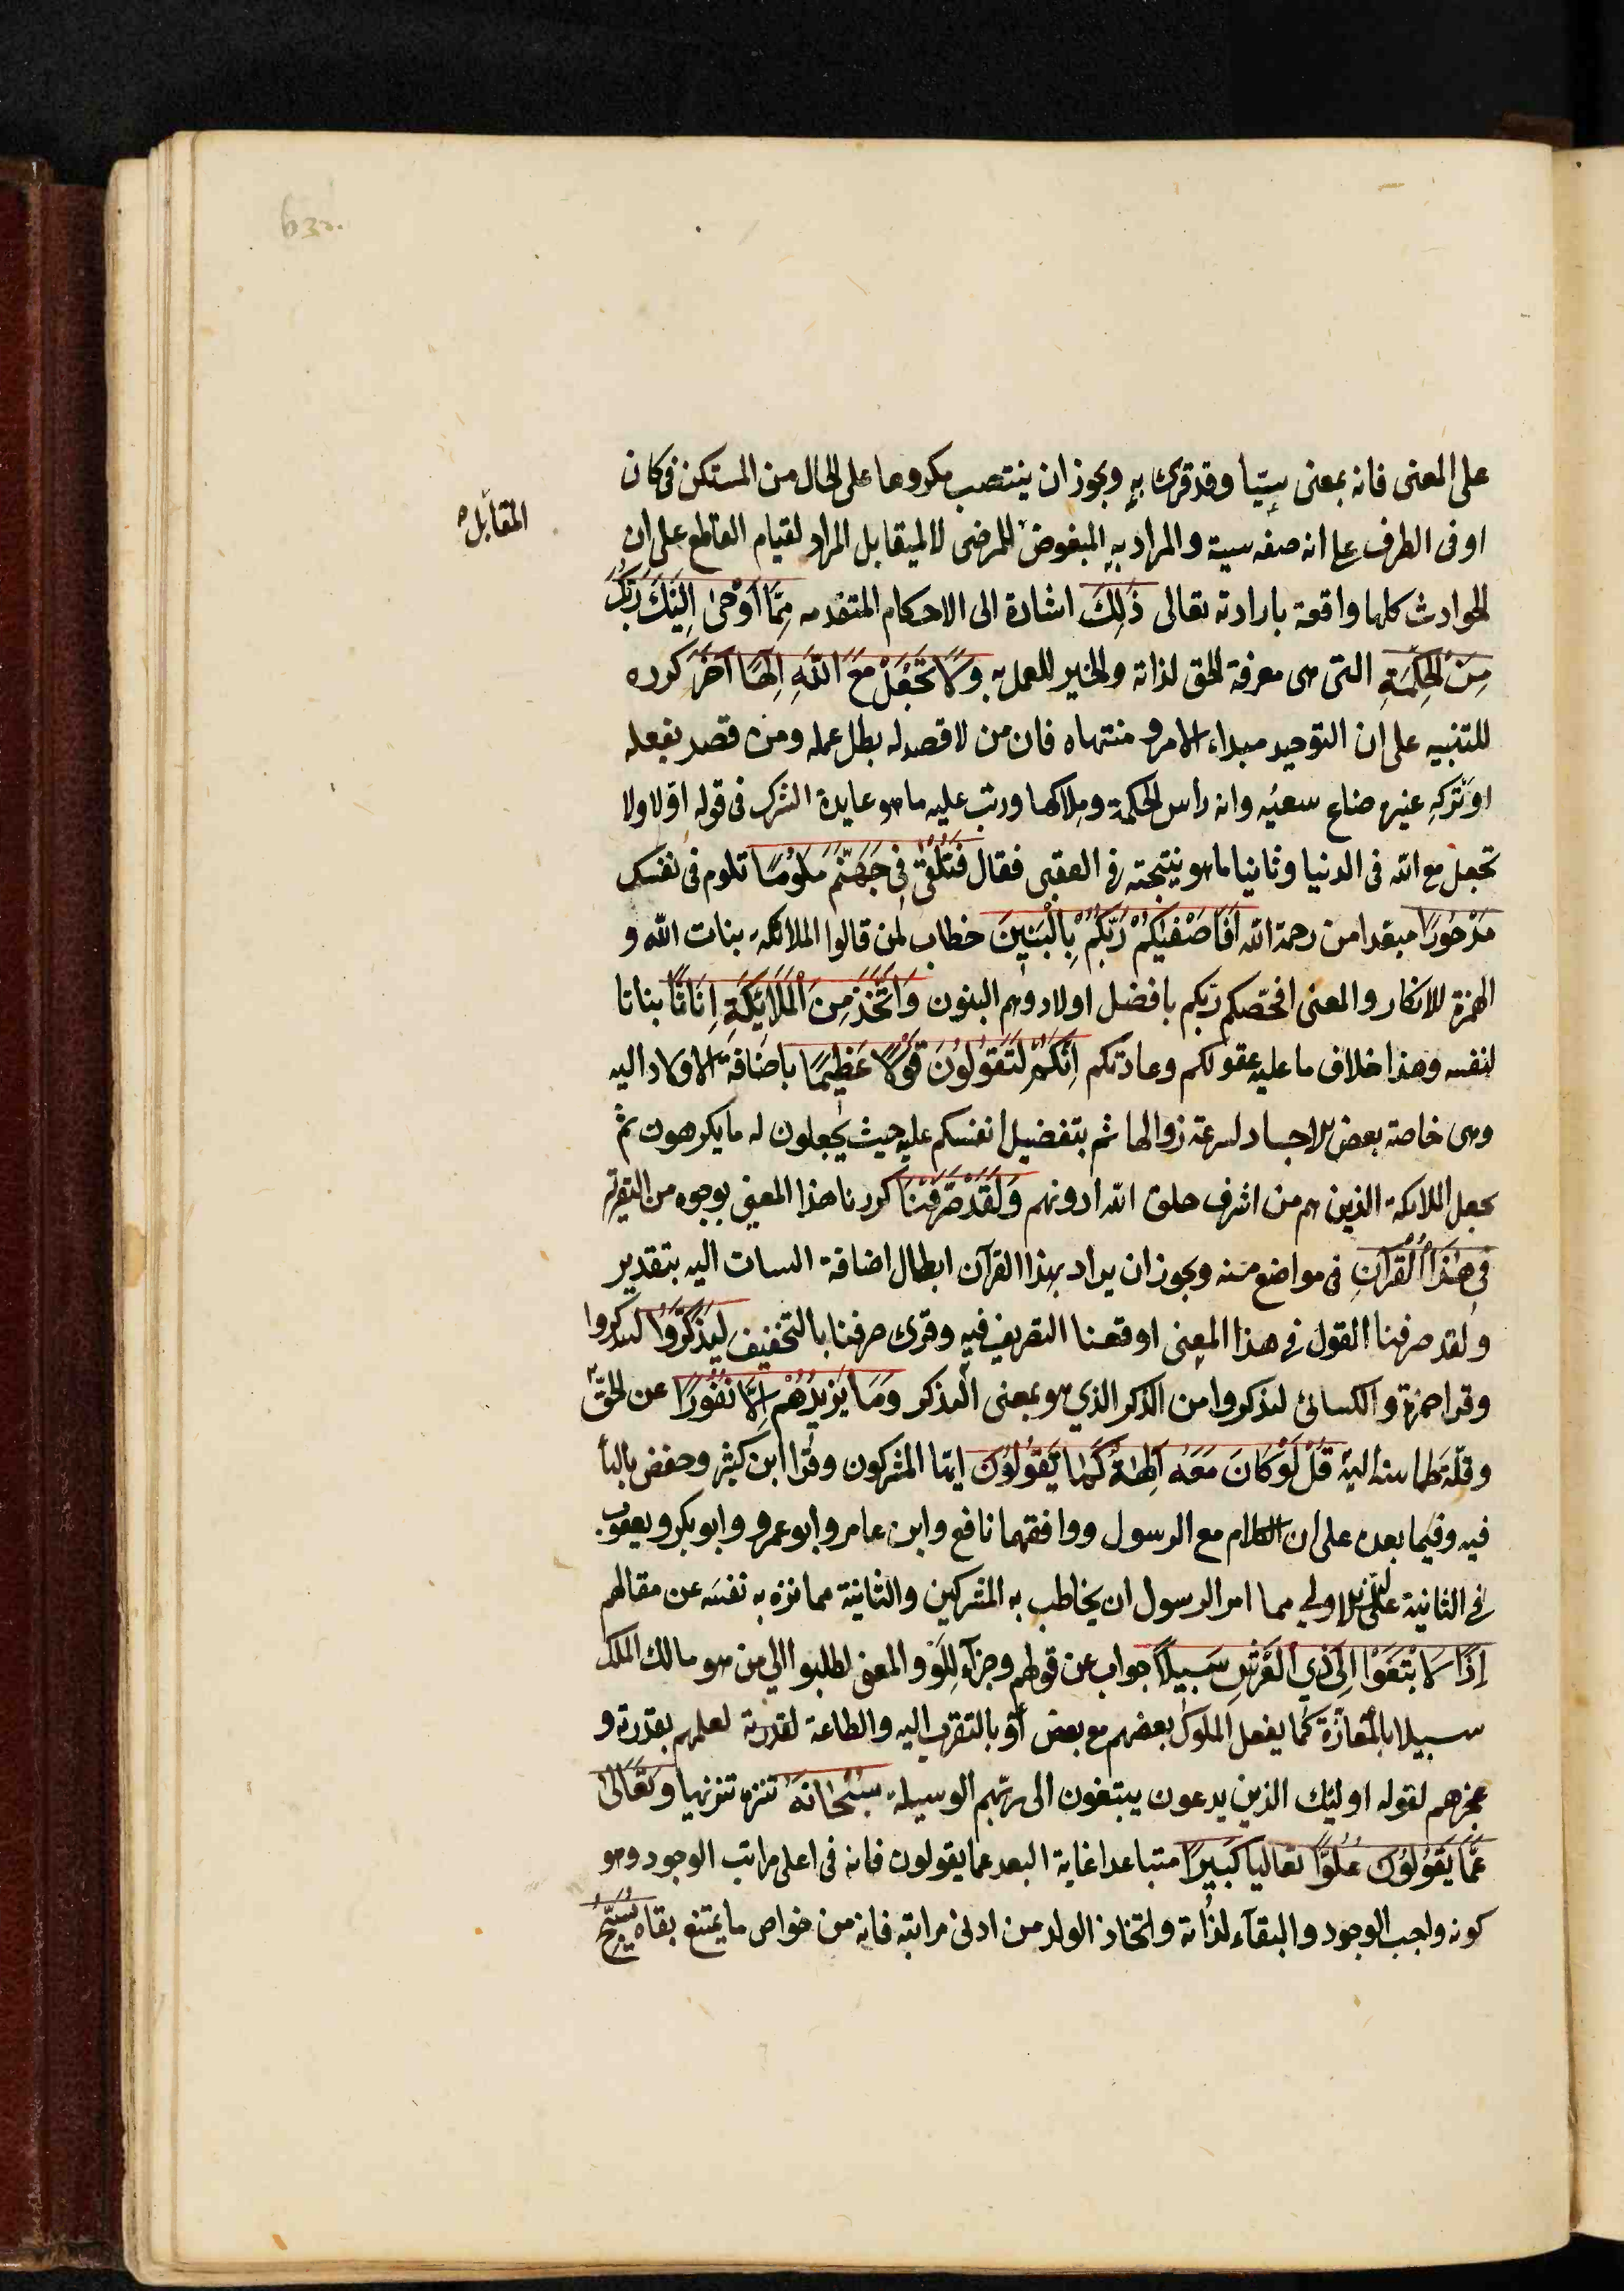 على المعنى فانه بمعنى سيّئا وقد قرئ به ويجوز ان ينتصب مكروها على الحال من المستكن فى كان
المقابل
او فى الظرف على انه صفه سيئة والمراد به المبغوض للمرضى لا لميقابل المراد لقيام القاطع على ان
الحوادث كلها واقعة بارادته تعالى ذَلِكَ اشارة الى الاحكام المتقدمه مِمَّا أَوْحَىٰ اِلَيْكَ رَبُّكَ
مِنَ الحِكْمَةِ التى هى معرفة الحق لذاته والخير للعمل به وَلَا تَجْعَلْ مَعَ اللَّهِ اِلٰهًا آخَرَ كرره
للتنبيه على ان التوحيد مبداء الامر و منتهاه فان من لا قصد له بطل عمله ومن قصد بفعله
او تَرْكِهِ غيره ضاع سعيُه وانه راس الحكمة وملاكها ورتب عليه ما هو عايدة الشرك فى قوله اوّلا ولا
تجعل مع الله فى الدنيا وثانيا ما هو نتيجته فى العقبى فقال فَتُلْقَىٰ فِى جَهَنَّمَ مَلُوْمًا تلوم فى نفسك
مَدْحُورًا مبعدا من رحمة الله أَفَأَصْفٰيكُمْ رَبُّكُمْ بِالْبَنِينَ خطاب لمن قالوا الملائكة بنات الله و
الهمزة للانكار والمعنى افخصّكم ربّكم بافضل اولاد وهم البنون وَاتَّخَذَ مِنَ الْمَلَائِكَةِ اِنَاثًا بناتا
لنفسه وهذا خلاف ما عليه عقولكم وعادتكم اِنَّكُمْ لَتَقُولُونَ قَوْلًا عَظِيمًا باضافة الاولاد اليه
وهى خاصة بعض الاجساد لسرعة زوالها ثم بتفضيل انفسكم عليه حيث يجعلون له ما يكرهون ثم
بجعل الملائكة الذين هم من اشرف خلق الله ادونهم وَلَقَدْ صَرَّفْنَا كررنا هذا المعنى بوجوه من التقرير
فِى هٰذَا الْقُرْآنِ فى مواضع منه ويجوز ان يراد بهذا القرآن ابطال اضافة البنات اليه بتقدير
ولقد صرفنا القول فى هذا المعنى او وقعنا التصريف فيه وقرئ صرفنا بالتخفيف لِيَذَّكَّرُوا ليتذكروا
وقرا حمزة والكسائى ليذكروا من الذكر الذي هو بمعنى التذكر وَمَا يَزِيدُهُمْ اِلَّا نُفُورًا عن الحقّ
وقلّة طمانينة اليه قُلْ لَوْ كَانَ مَعَهُ آلِهَةٌ كَمَا يَقُولُونَ ايّها المشركون وقرا ابن كثير وحفص بالياء
فيه وفيما بعده على ان الكلام مع الرسول ووافقهما نافع وابن عامر وابو عمرو وابو بكر ويعقوب
فى الثانية على ان الاولى مما امر الرسول ان يخاطب به المشركين والثانية مما نزه به نفسَه عن مقالهم
اِذًا لَابْتَغَوْا اِلَى ذِي الْعَرْشِ سَبِيلًا جواب عن قولهم وجزآء لِلَوْ والمعنى لطلبوا الى من هو مالك الملك
سبيلا بالمُعازّة كما يفعل الملوك بعضهم مع بعض أو بالتقرب اليه والطاعة لقدرته لعلمهم بقدرته و
عجزهم لقوله اوليئك الذين يدعون يبتغون الى ربّهم الوسيلة سُبْحَانَهُ تنزه تنزيها وَتَعَالَىٰ
عَمَّا يَقُوْلُوْنَ عُلُوًّا تعاليا كَبِيرًا متباعدا غاية البعد عما يقولون فانه فى اعلى مراتب الوجود وهو
كونه واجب الوجود والبقآء لذاته واتخاذ الولد من ادنى مراتبه فانه من خواص ما يمتنع بقاه يُسَبِّحُ